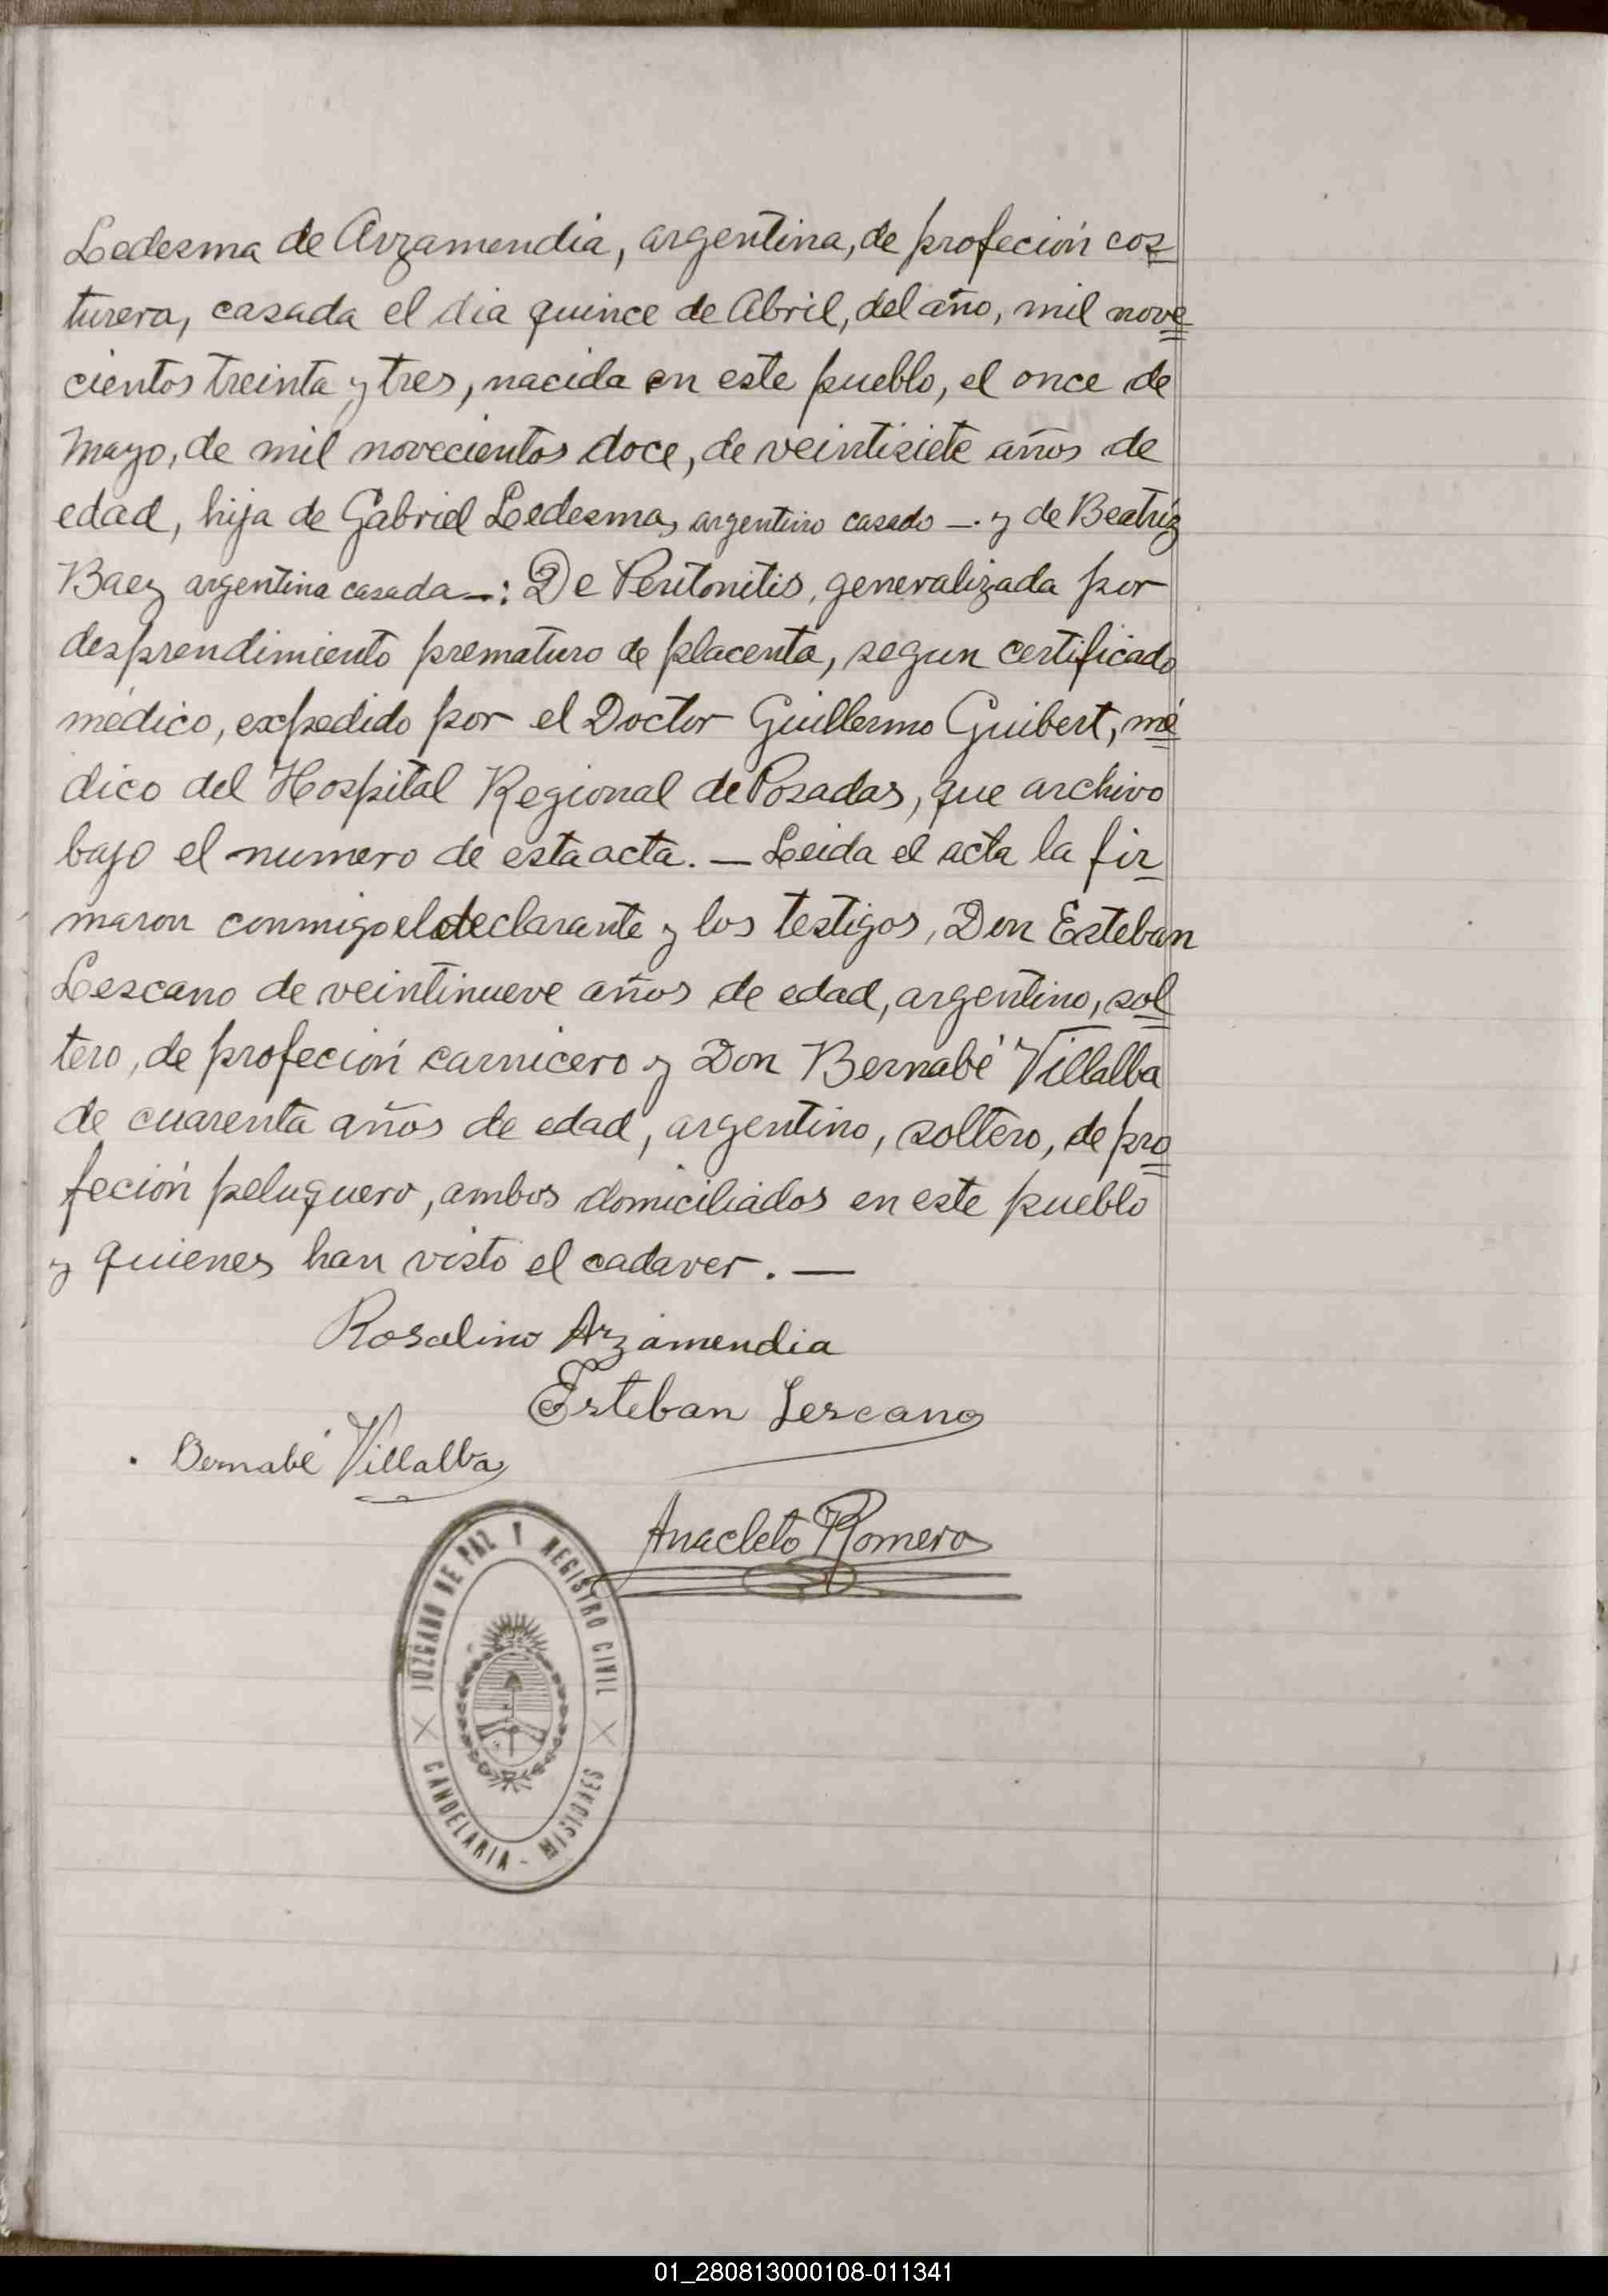 Ledesma de Arzamendia, argentina, de profeción cos
turera, casada el dia quince de Abril, del año, mil nove
cientos treinta y tres, nacida en este pueblo, el once de
Mayo, de mil novecientos doce, de veintisiete años de
edad, hija de Gabriel Ledesma, argentino casado —. y de Beatriz
Baez argentina casada —: De Peritonitis, generalizada por
desprendimiento prematuro de placenta, segun certificado
médico, expedido por el Doctor Guillermo Guibert, mé
dico del Hospital Regional de Posadas, que archivo
bajo el numero de esta acta. — Leida el acta la fir
maron conmigo el declarante y los testigos, Don Esteban
Lescano de veintinueve años de edad, argentino, sol
tero, de profeción carnicero y Don Bernabé Villalba
de cuarenta años de edad, argentino, soltero, de pro
feción peluquero, ambos domiciliados en este pueblo
y quienes han visto el cadaver. —
Rosalino Arzamendia
Esteban Lescano
Bernabé Villalba
Anacleto Romero
JUZGADO DE PAZ Y REGISTRO CIVIL
CANDELARIA - MISIONES
01_280813000108-011341